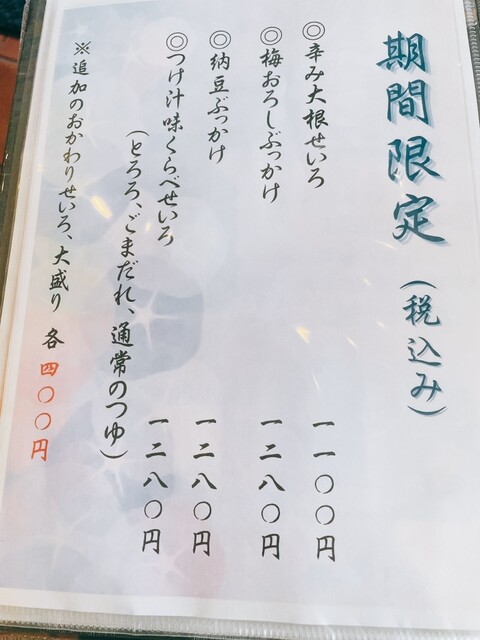 期間限定（税込み）
◎辛み大根せいろ 一一〇〇円
◎梅おろしぶっかけ 一二八〇円
◎納豆ぶっかけ 一二八〇円
◎つけ汁味くらべせいろ 一二八〇円
（とろろ、ごまだれ、通常のつゆ）
※追加のおかわりせいろ、大盛り 各四〇〇円